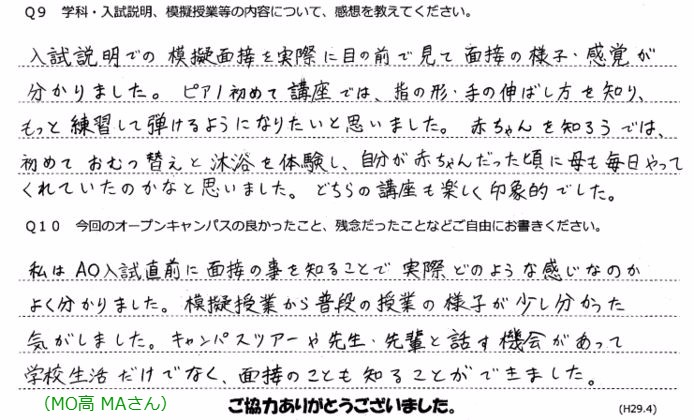 Q9 学科・入試説明、模擬授業等の内容について、感想を教えてください。
入試説明での模擬面接を実際に目の前で見て面接の様子・感覚が
分かりました。ピアノ初めて講座では、指の形・手の伸ばし方を知り、
もっと練習して弾けるようになりたいと思いました。赤ちゃんを知ろうでは、
初めておむつ替えと沐浴を体験し、自分が赤ちゃんだった頃に母も毎日やって
くれていたのかなと思いました。どちらの講座も楽しく印象的でした。
Q10 今回のオープンキャンパスの良かったこと、残念だったことなどご自由にお書きください。
私はAO入試直前に面接の事を知ることで実際どのような感じなのか
よく分かりました。模擬授業から普段の授業の様子が少し分かった
気がしました。キャンパスツアーや先生・先輩と話す機会があって
学校生活だけでなく、面接のことも知ることができました。
(MO高 MAさん)
ご協力ありがとうございました。
(H29.4)